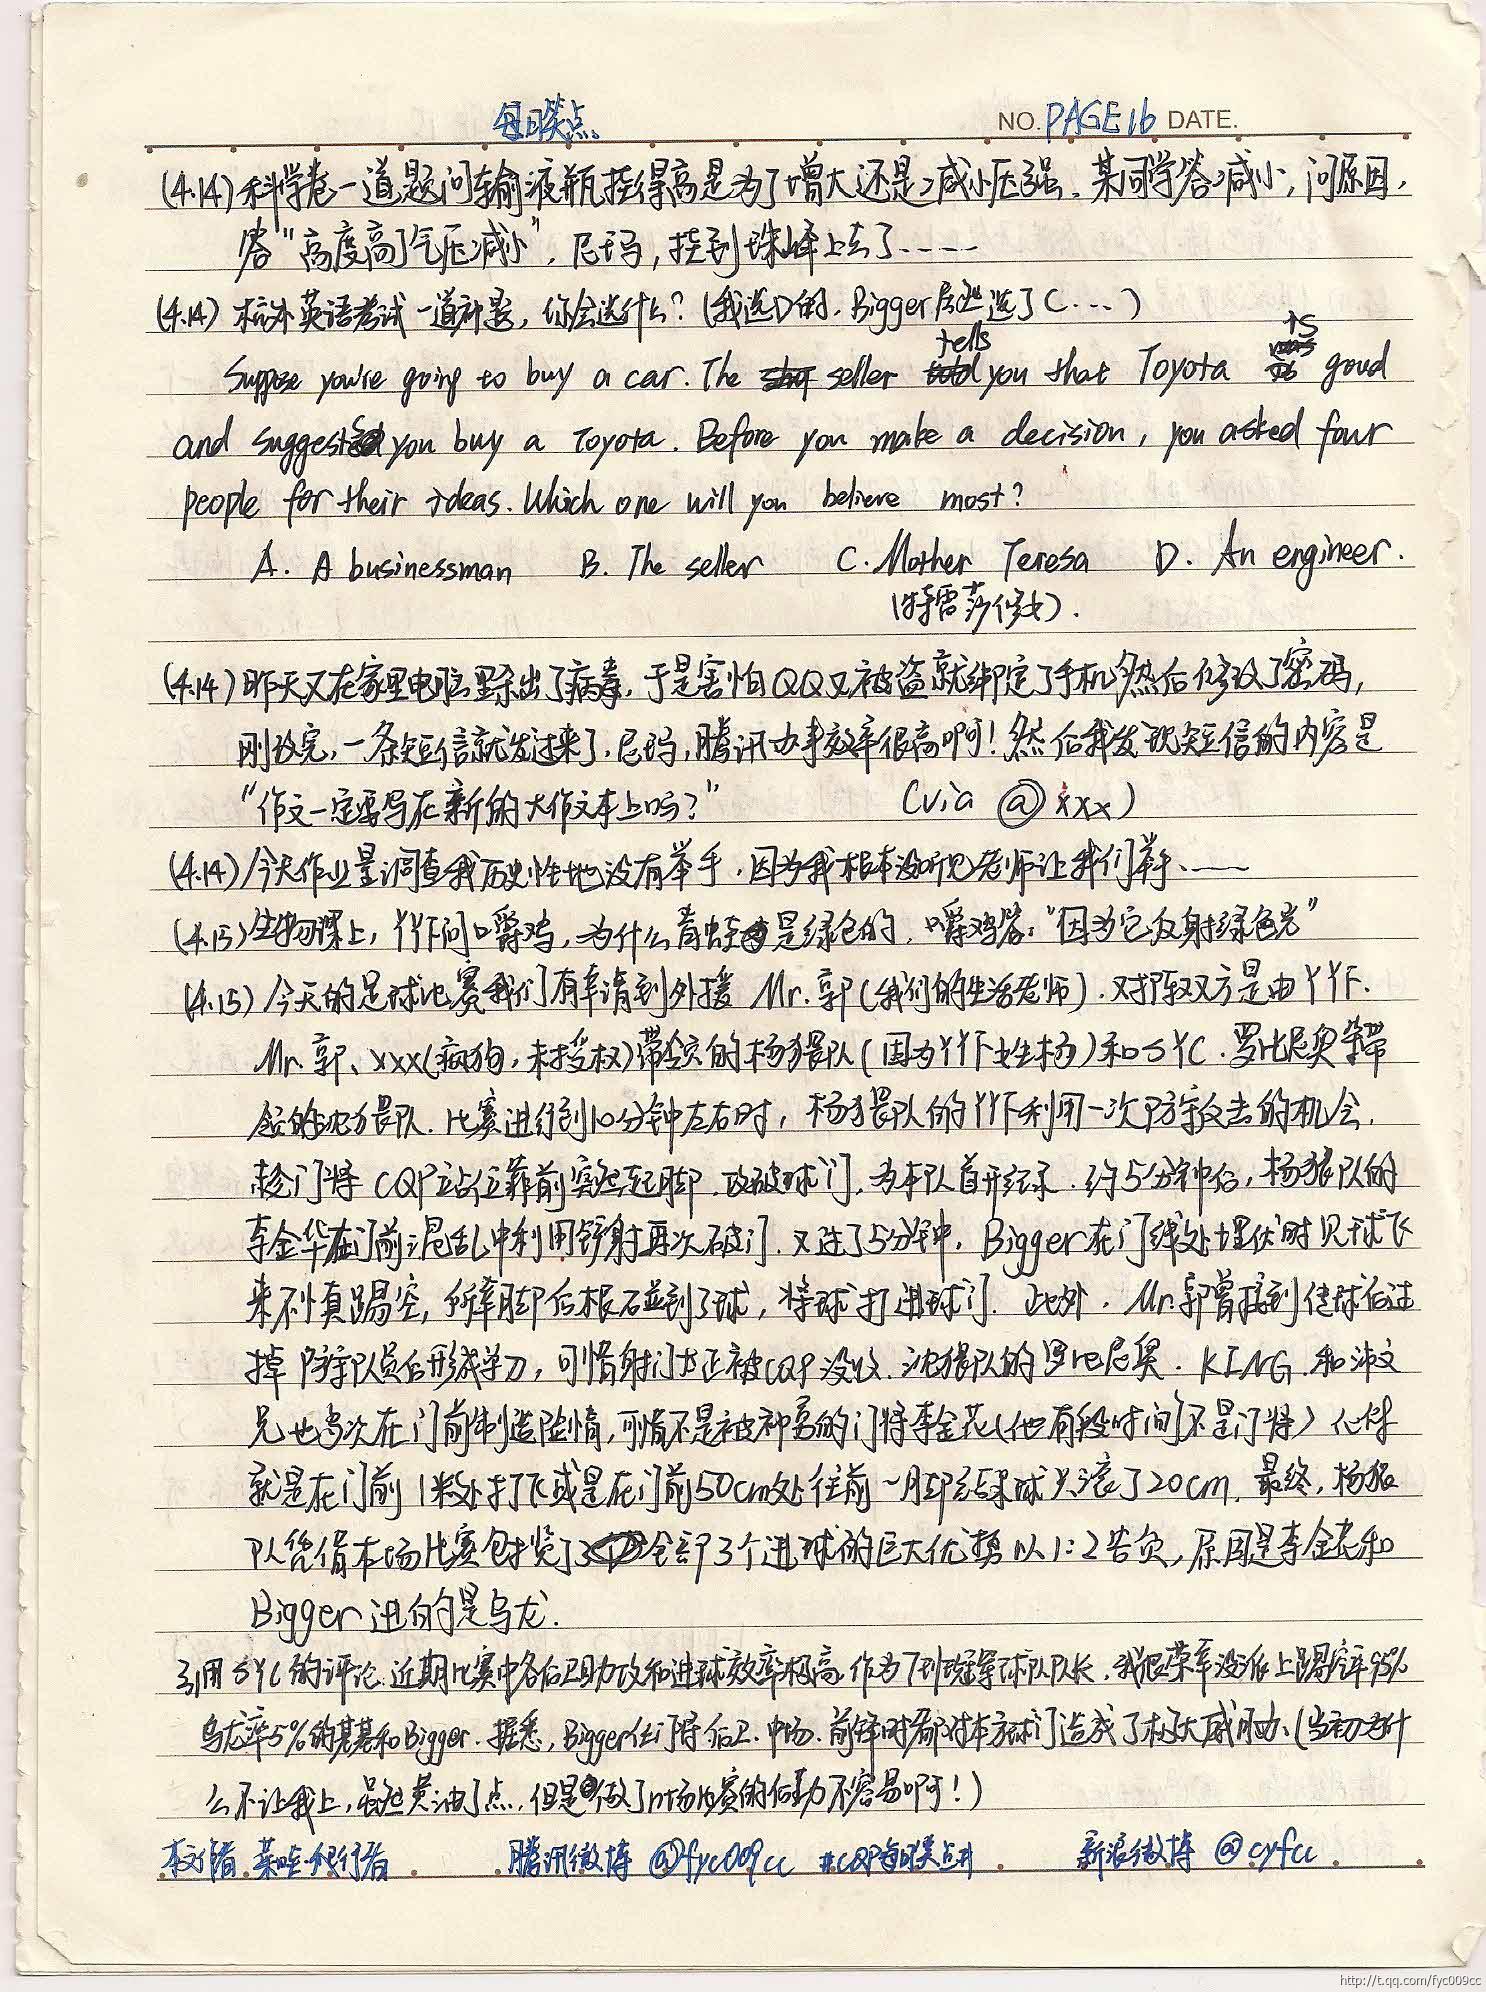 每日笑点
NO. PAGE16 DATE.
(4.14) 科学卷一道题问输液瓶挂得高是为了增大还是减小压强、某同学答减小, 问原因,
答"高度高了气压减小", 尼玛, 挂到珠峰上去了……
(4.14) 英语考试一道补题, 你会选什么? (我选D的, Bigger居然选了C…)
Suppose you're going to buy a car. The seller tells you that Toyota is good
and suggests you buy a Toyota. Before you make a decision, you asked four
people for their ideas. Which one will you believe most?
A. A businessman B. The seller C. Mother Teresa D. An engineer.
(特雷莎修女).
(4.14) 昨天又在家里电脑里杀出了病毒, 于是害怕QQ又被盗就绑定了手机然后修改了密码,
刚改完, 一条短信就发过来了, 尼玛, 腾讯办事效率很高啊! 然后我发现短信的内容是
"作文一定要写在新的大作文本上吗?" (via @xxx)
(4.14) 今天作业量调查我历史性地没有举手, 因为我根本没听见老师让我们举手、……
(4.15) 生物课上, 丫丫下问嚼鸡, 为什么青蛙是绿色的, 嚼鸡答: "因为它反射绿色光"
(4.15) 今天的足球比赛我们有幸请到外援 Mr. 郭 (我们的生活老师). 对阵双方是由丫丫下.
Mr. 郭、xxx(疯狗, 未授权)带领的杨猥队 (因为丫丫下姓杨) 和SYC. 罗比尼奥等带
领的沈猥队. 比赛进行到10分钟左右时, 杨猥队的丫丫下利用一次防守反击的机会,
趁门将CQP站位靠前突然起脚, 攻破球门, 为本队首开纪录. 约5分钟后, 杨猥队的
李金华在门前混乱中利用铲射再次破门. 又过了5分钟, Bigger在门线处埋伏时见球飞
来不慎踢空, 所幸脚后根碰到了球, 将球打进球门. 此外, Mr. 郭曾接到传球后过
掉防守队员后形成单刀, 可惜射门被CQP没收. 沈猥队的罗比尼奥. KING. 和沛文
兄也多次在门前制造险情, 可惜不是被神勇的门将李金花(他有段时间不是门将)化解
就是在门前1米处打飞或是在门前50cm处往前一脚结果球只滚了20cm. 最终, 杨猥
队凭借本场比赛包揽了全部3个进球的巨大优势以1:2告负, 原因是李金花和
Bigger进的是乌龙.
引用SYC的评论: 近期比赛中各后卫助攻和进球效率极高, 作为7班冠军球队队长, 我很荣幸没派上踢空率95%
乌龙率5%的基基和Bigger. 据悉, Bigger任门将. 后卫. 中场. 前锋时都对本方球门造成了极大威胁. (当初为什
么不让我上, 虽然黄油了点, 但是做了n场比赛的后勤不容易啊!)
本文作者 菜哇·银行者 腾讯微博 @fyc009cc #CQP每日笑点# 新浪微博 @cyfcc
http://t.qq.com/fyc009cc